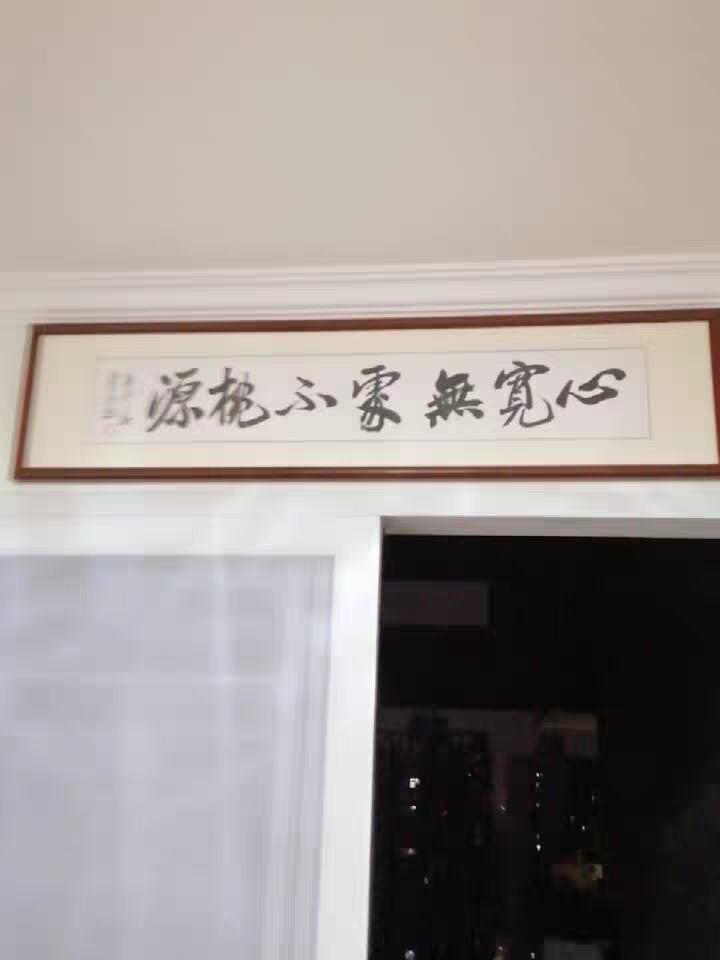 心寬無處不桃源